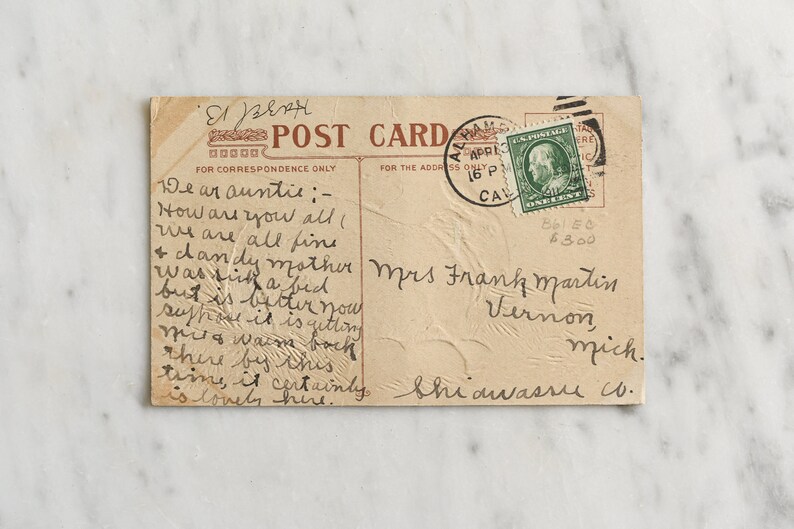 Hazel B.
POST CARD
FOR CORRESPONDENCE ONLY
FOR THE ADDRESS ONLY
ALHAM
APR 13
16 P
CAL
U.S. POSTAGE
ONE CENT
B61 EC
$3.00
Dear auntie;-
How are you all,
we are all fine
& dandy mother
was sick a bid
but is better now
suppose it is getting
nice & warm back
there by this
time, it certainly
is lovely here.
Mrs Frank Martin
Vernon,
Mich.
Shiawassee Co.